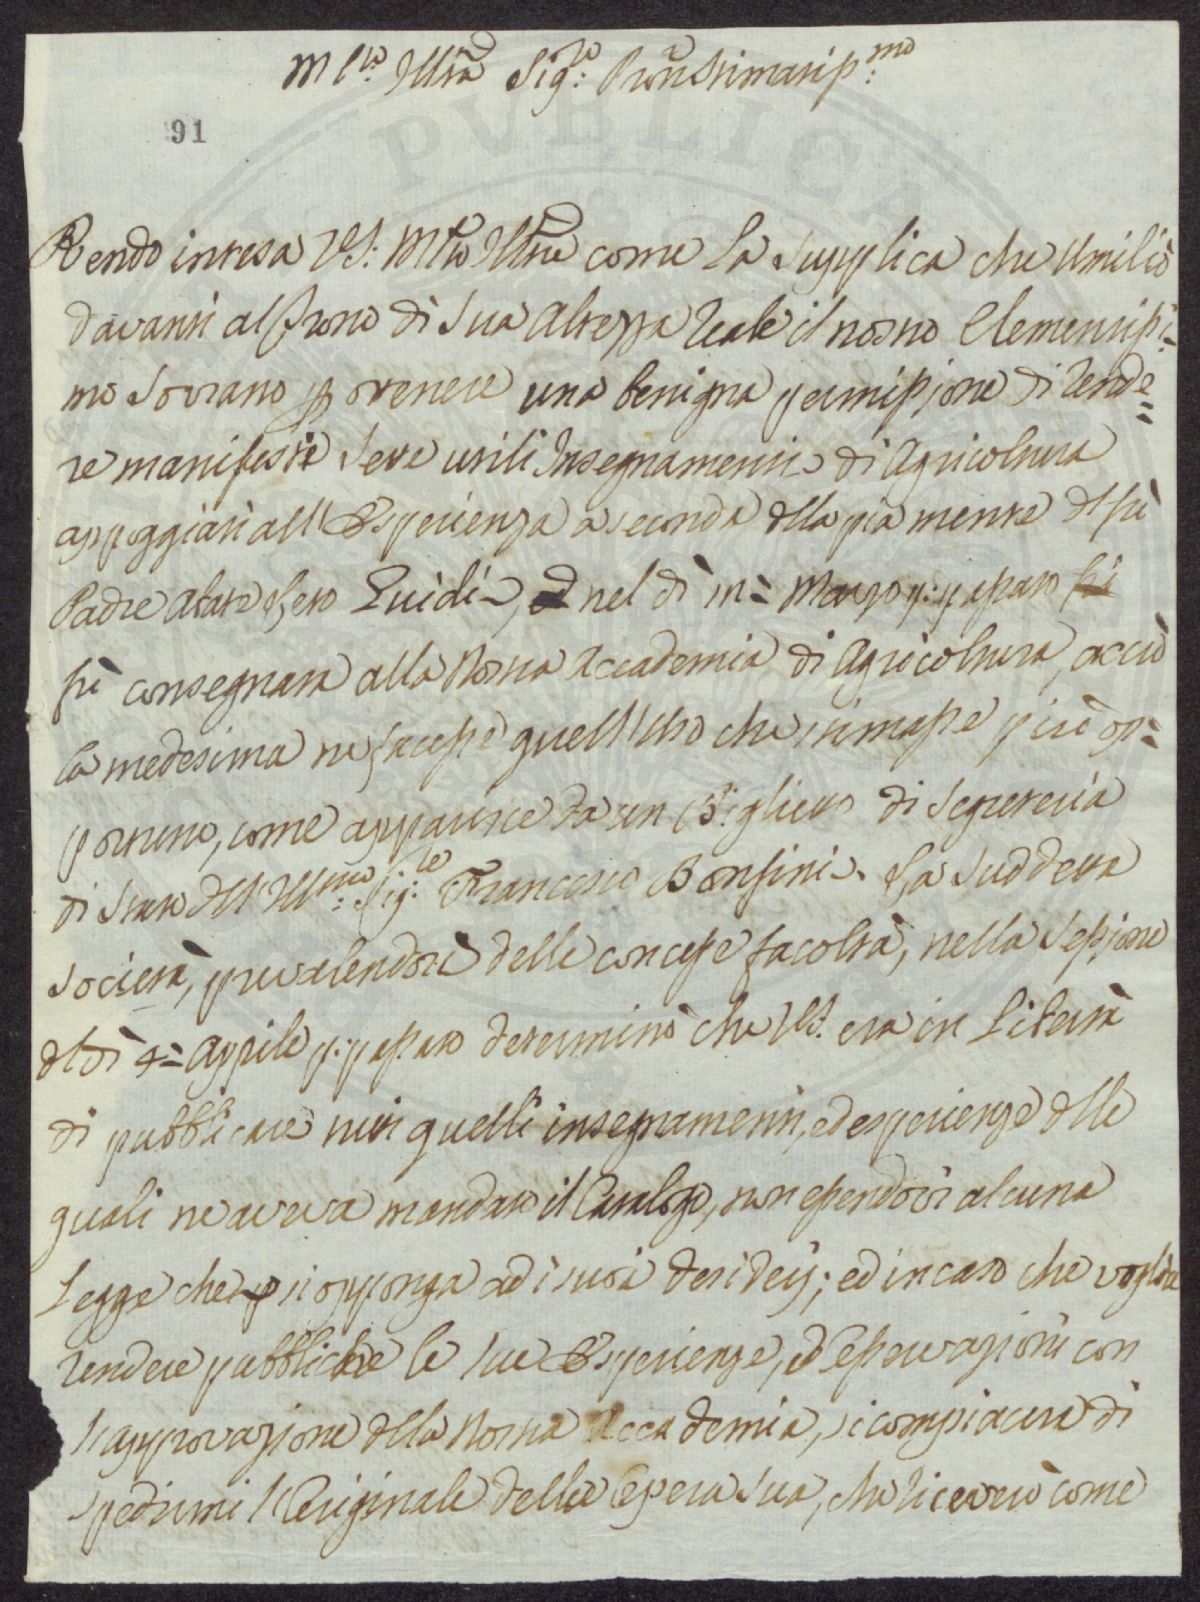 M.to Ill.re Sig.re Pron Stimatiss.mo
91
PUBLICA
Rendo intesa VS: Mto Illre come La Supplica che Umiliò
davanti al Trono di Sua Altezza Reale il nostro Clementissi=
mo Sovrano p ottenere una benigna permissione di rende=
re manifesti sette utili Insegnamenti di Agricoltura
appoggiati all'Esperienza a seconda della pia mente del fù
Padre Abate Guidi, ed nel dì Marzo p:passato fù
fù consegnata alla Nostra Accademia di Agricoltura, acciò
la medesima ne facesse quell'Uso che stimasse più op=
portuno, come apparisce da un Biglietto di Segreteria
di Stato dell'Ill.mo Sig.re Francesco Bonsini. La Suddetta
Società, prevalendosi delle concesse facoltà, nella Sessione
del dì 4= Aprile p:passato determinò che VS. era in Libertà
di pubblicare tutti quelli insegnamenti, ed esperienze delle
quali ne aveva mandato il Catalogo, non essendovi alcuna
Legge che si opponga ad i suoi desiderj; ed in caso che voglia
rendere pubbliche le sue Esperienze, ed Osservazioni con
l'approvazione della Nostra Accademia, si compiacerà di
spedirmi l'Originale delle Opera Sua, che riceverò come